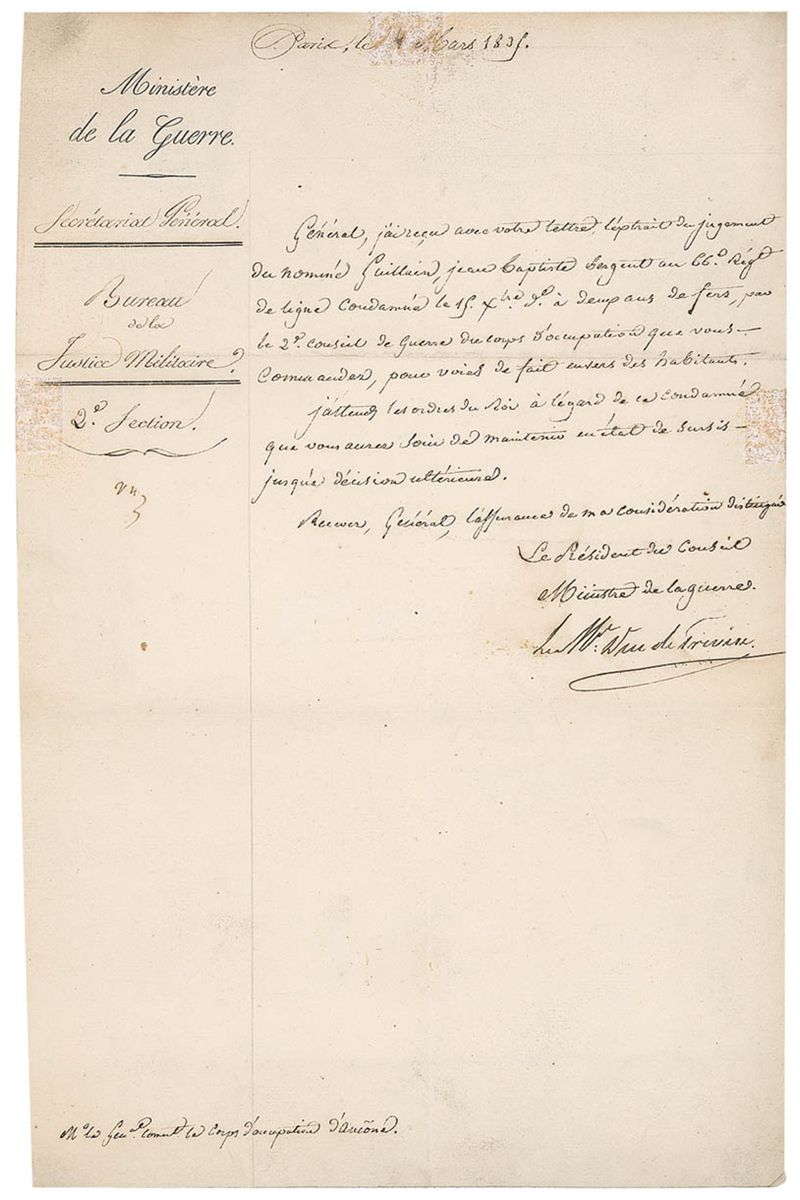 Paris, le 4 Mars 1835.
Ministère
de la Guerre.
Secrétariat Général.
Bureau
de la
Justice Militaire.
2e. Section.
Général, j'ai reçu avec votre lettre, l'extrait du jugement
du nommé Guillain, jean Baptiste Sergent au 66e. Régt
de ligne Condamné le 15. Xbre dr. à deux ans de fers, par
le 2e. Conseil de Guerre du corps d'occupation que vous
Commandez, pour voies de fait envers des habitants.
j'attends les ordres du Roi à l'égard de ce Condamné
que vous aurez soin de maintenir en état de sursis
jusqu'à décision ultérieure.
Recevez, Général, l'assurance de ma considération distinguée
Le Président du Conseil
Ministre de la guerre.
Le Mal. Duc de Trévise.
Mr. le Général Commt. le Corps d'occupation d'Ancône.